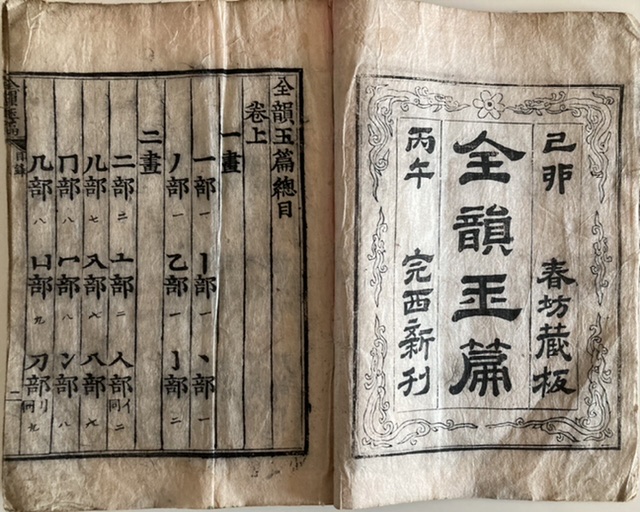 己卯 春坊藏板
全韻玉篇
丙午 完西新刊
全韻玉篇總目
卷上
一畫
一部一 丨部一 丶部一
丿部一 乙部一 亅部二
二畫
二部二 亠部二 人部亻同二
儿部七 入部七 八部七
冂部八 冖部八 冫部八
几部八 凵部九 刀部刂同九
全韻玉篇 目錄